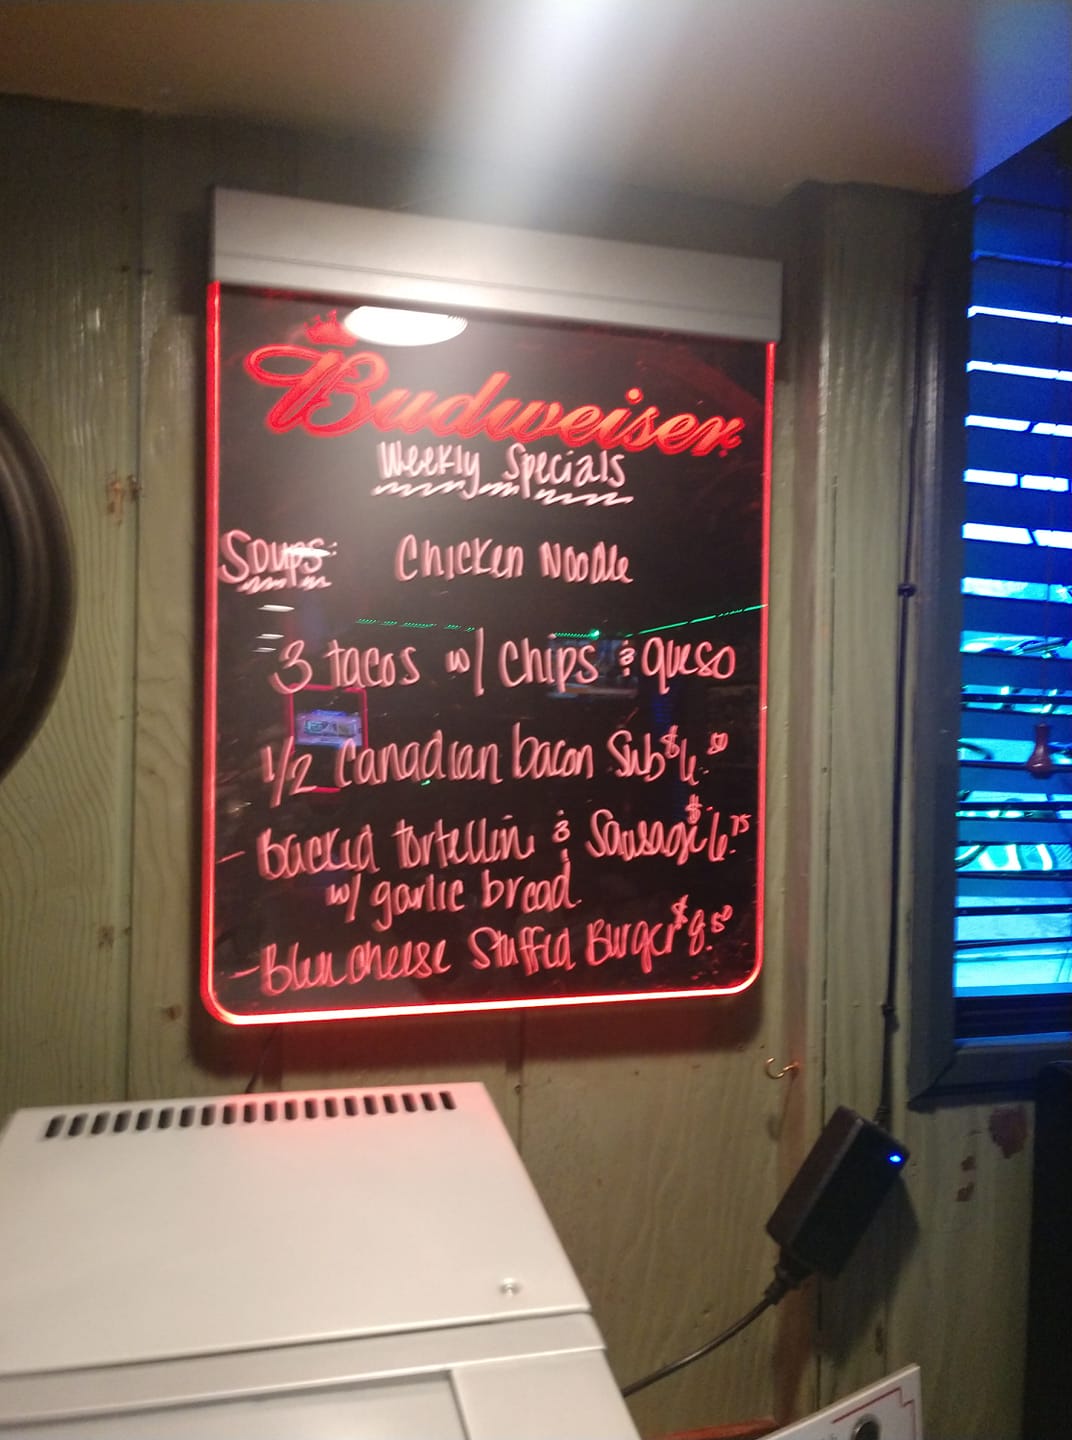 Budweiser
Weekly Specials
Soups: Chicken Noodle
3 tacos w/ Chips & queso
1/2 Canadian bacon Sub $6.50
- Backed tortellini & Sausage $6.75
w/ garlic bread
- Bleu cheese Stuffed Burger $8.50